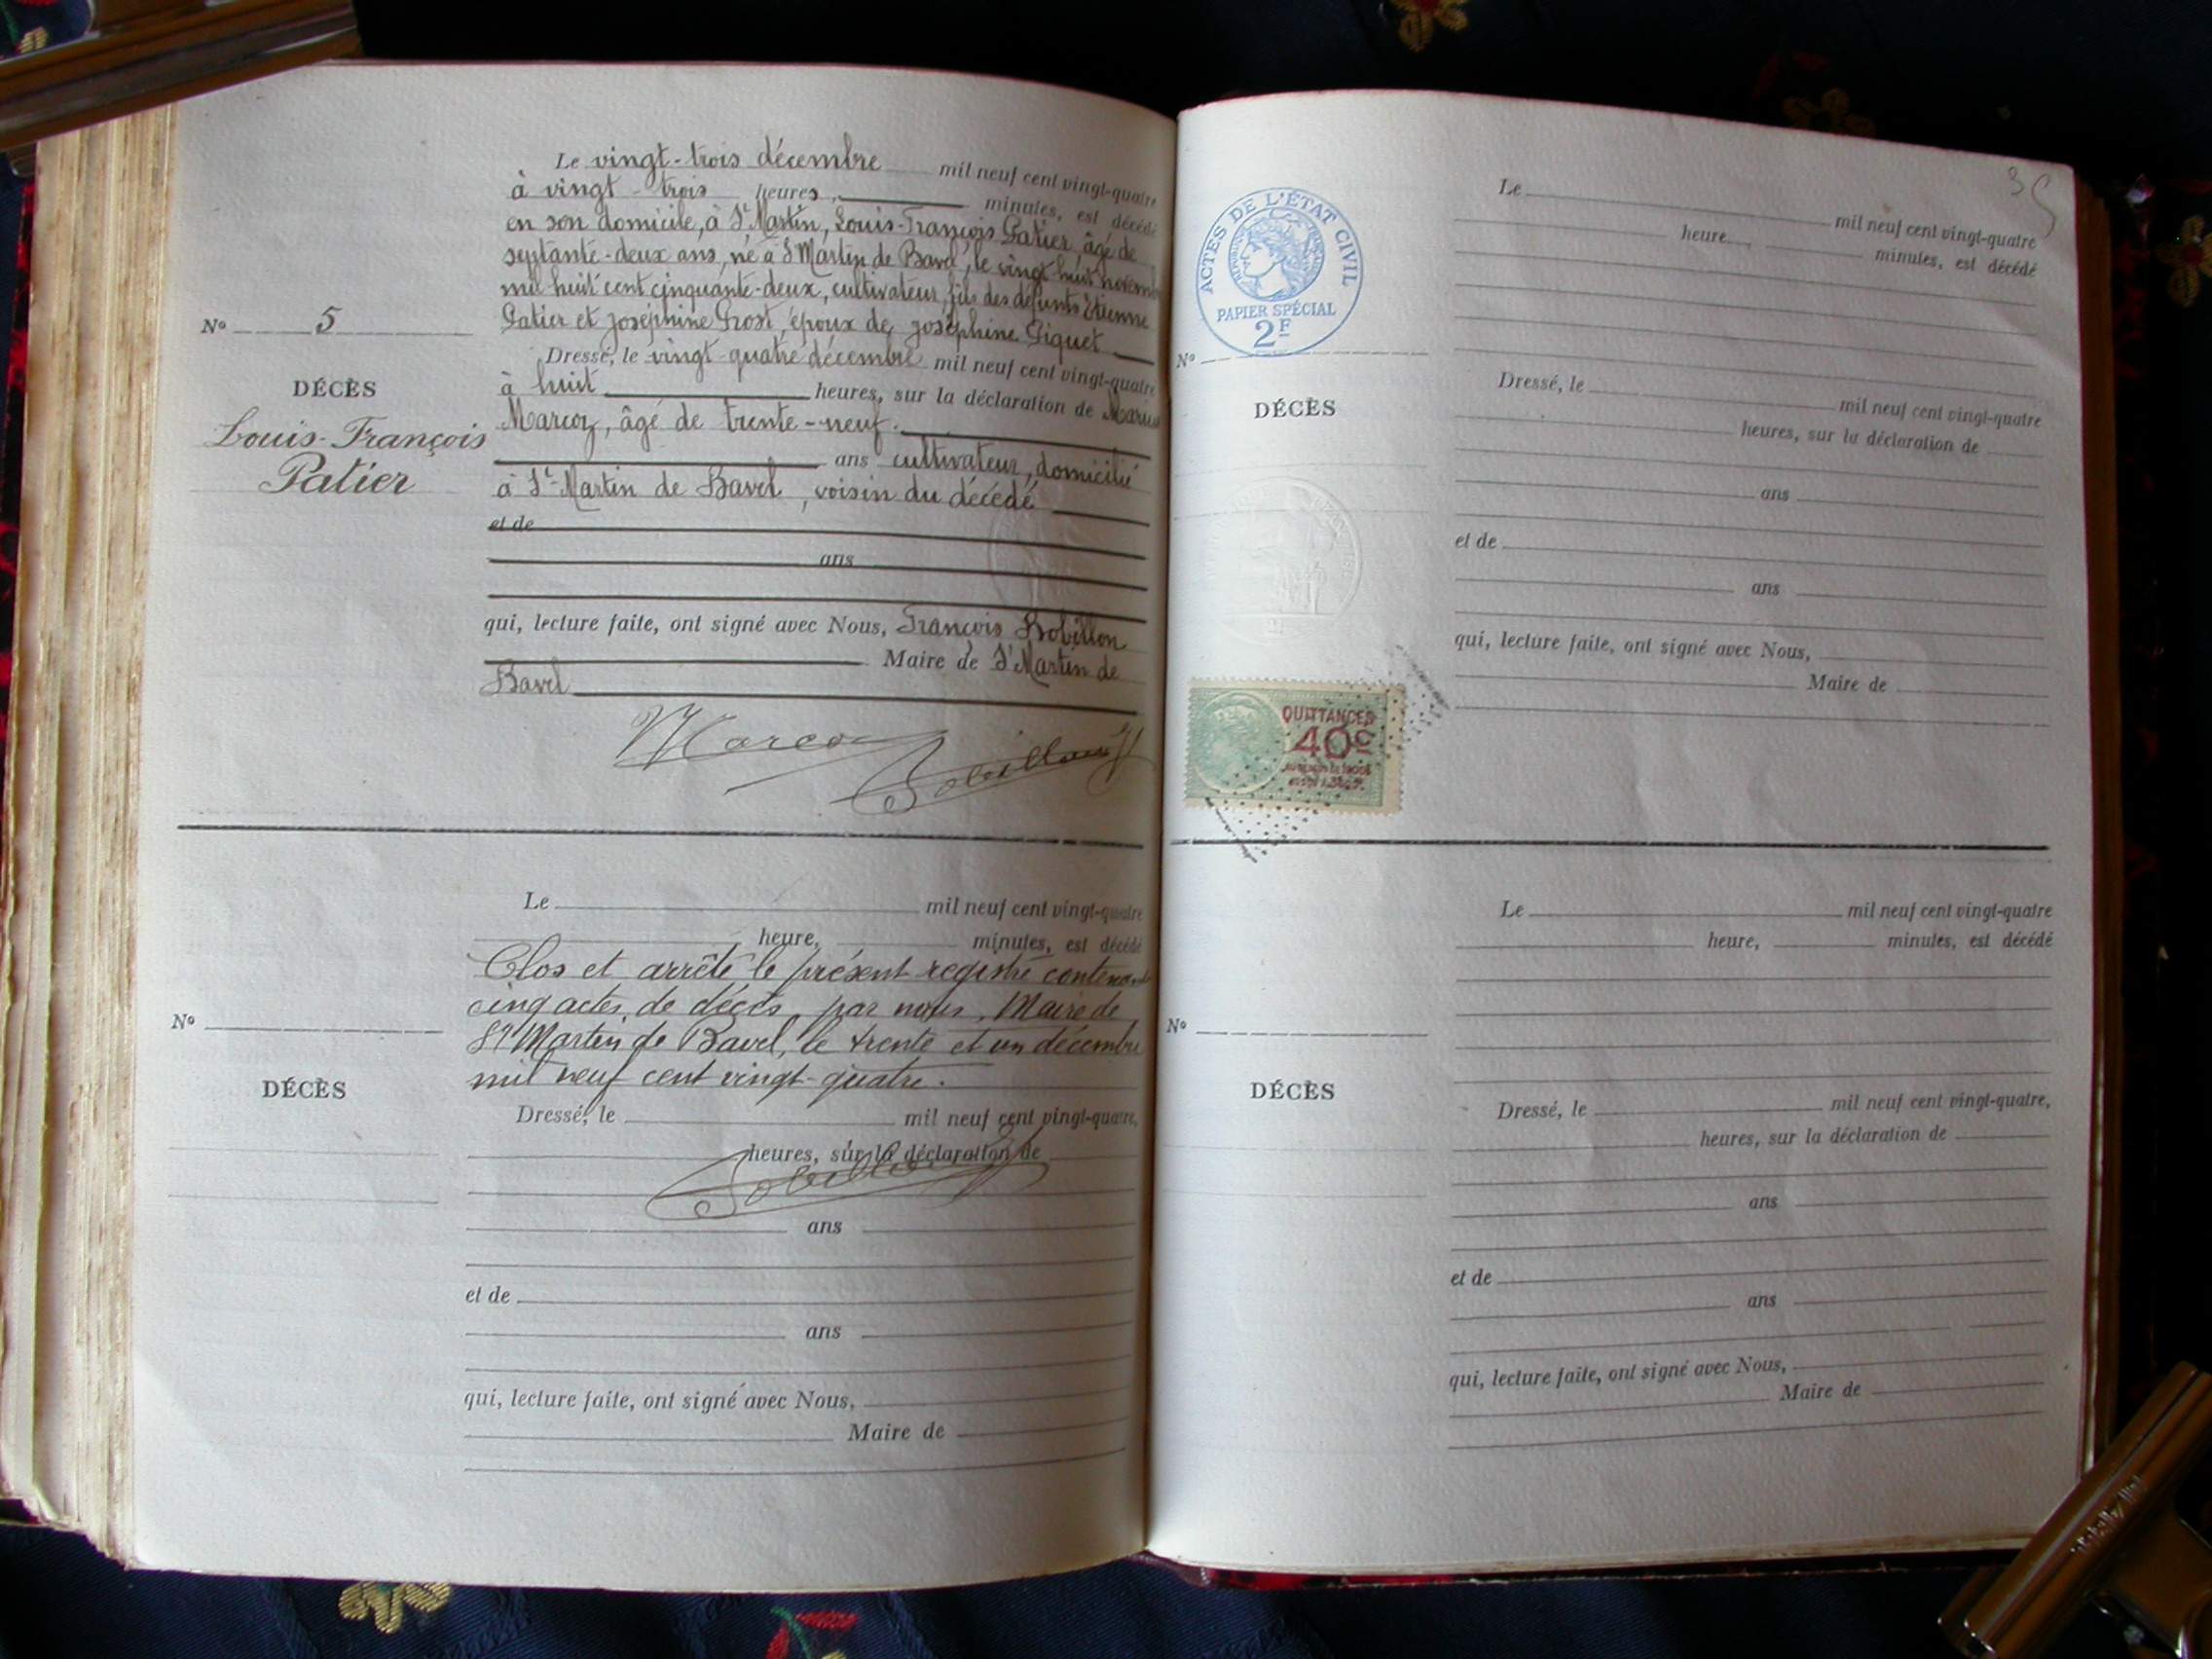 Le vingt-trois décembre mil neuf cent vingt-quatre
à vingt-trois heures, minutes, est décédé
en son domicile, à St Martin, Louis-François Patier, âgé de
septante-deux ans, né à St Martin de Bavel, le vingt-huit novembre
mil huit cent cinquante-deux, cultivateur, fils des défunts Etienne
Patier et Joséphine Prost, époux de Joséphine Piquet
Dressé, le vingt-quatre décembre mil neuf cent vingt-quatre
à huit heures, sur la déclaration de Marius
Marcoz, âgé de trente-neuf
ans cultivateur, domicilié
à St-Martin de Bavel, voisin du décédé
et de
ans
qui, lecture faite, ont signé avec Nous, François Bobillon
Maire de St Martin de
Bavel
Marcoz
Bobillon
No 5
DÉCÈS
Louis-François
Patier
Le mil neuf cent vingt-quatre
heure, minutes, est décédé
Clos et arrêté le présent registre contenant
cinq actes de décès, par nous, Maire de
St Martin de Bavel, le trente et un décembre
mil neuf cent vingt-quatre.
Dressé, le mil neuf cent vingt-quatre,
heures, sur la déclaration de
Bobillon
ans
et de
ans
qui, lecture faite, ont signé avec Nous,
Maire de
No
DÉCÈS
35
ACTES DE L'ÉTAT CIVIL
PAPIER SPÉCIAL
2F
No
DÉCÈS
QUITTANCES
40c
Le mil neuf cent vingt-quatre
heure minutes, est décédé
Dressé, le mil neuf cent vingt-quatre
heures, sur la déclaration de
ans
et de
ans
qui, lecture faite, ont signé avec Nous,
Maire de
No
DÉCÈS
Le mil neuf cent vingt-quatre
heure, minutes, est décédé
Dressé, le mil neuf cent vingt-quatre,
heures, sur la déclaration de
ans
et de
ans
qui, lecture faite, ont signé avec Nous,
Maire de